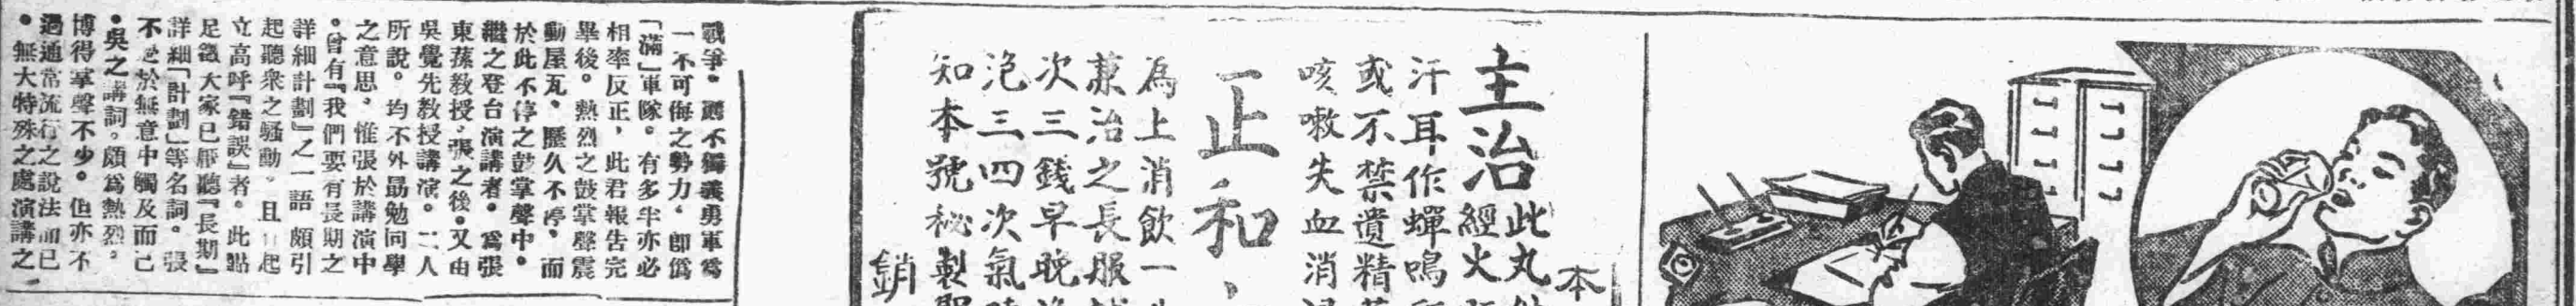 戰爭。應不獨義勇軍為
一不可侮之勢力。即偽
「滿」軍隊。有多半亦必
相率反正，此君報告完
畢後。熱烈之鼓掌聲震
動屋瓦。歷久不停。而
於此不停之鼓掌聲中。
繼之登台演講者。為張
東蓀教授。張之後。又由
吳覺先教授講演。二人
所說。均不外勗勉同學
之意思，惟張於講演中
。曾有『我們要有長期之
詳細計劃』之一語 頗引
起聽眾之騷動。且 起
立高呼『錯誤』者。此點
足徵大家已厭聽『長期』
詳細「計劃」等名詞。張
不 於無意中觸及而已
。吳之講詞。頗為熱烈。
博得掌聲不少。但亦不
過通常流行之說法而已
。無大特殊之處演講之
本
主治 此丸
經火
汗耳作蟬鳴
或不禁遺精
咳嗽失血消
正和
為上消飲一
兼治之長服
次三錢早晚
三四次氣
知本號秘製
銷